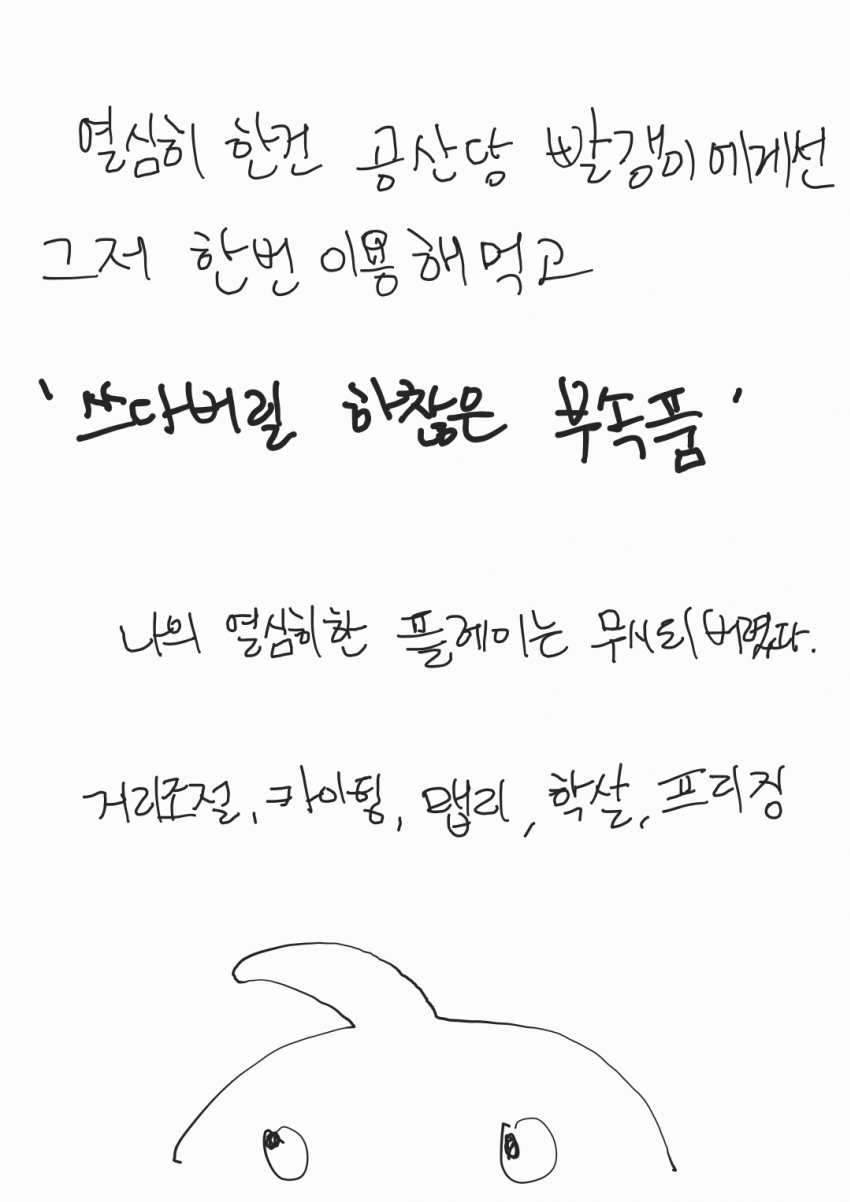 열심히 한건 공산당 빨갱이에게선
그저 한번 이용해먹고
'쓰다버릴 하찮은 부속품'
나의 열심히한 플레이는 무시되버렸다.
거리조절, 카이팅, 맵리, 학살, 프리징